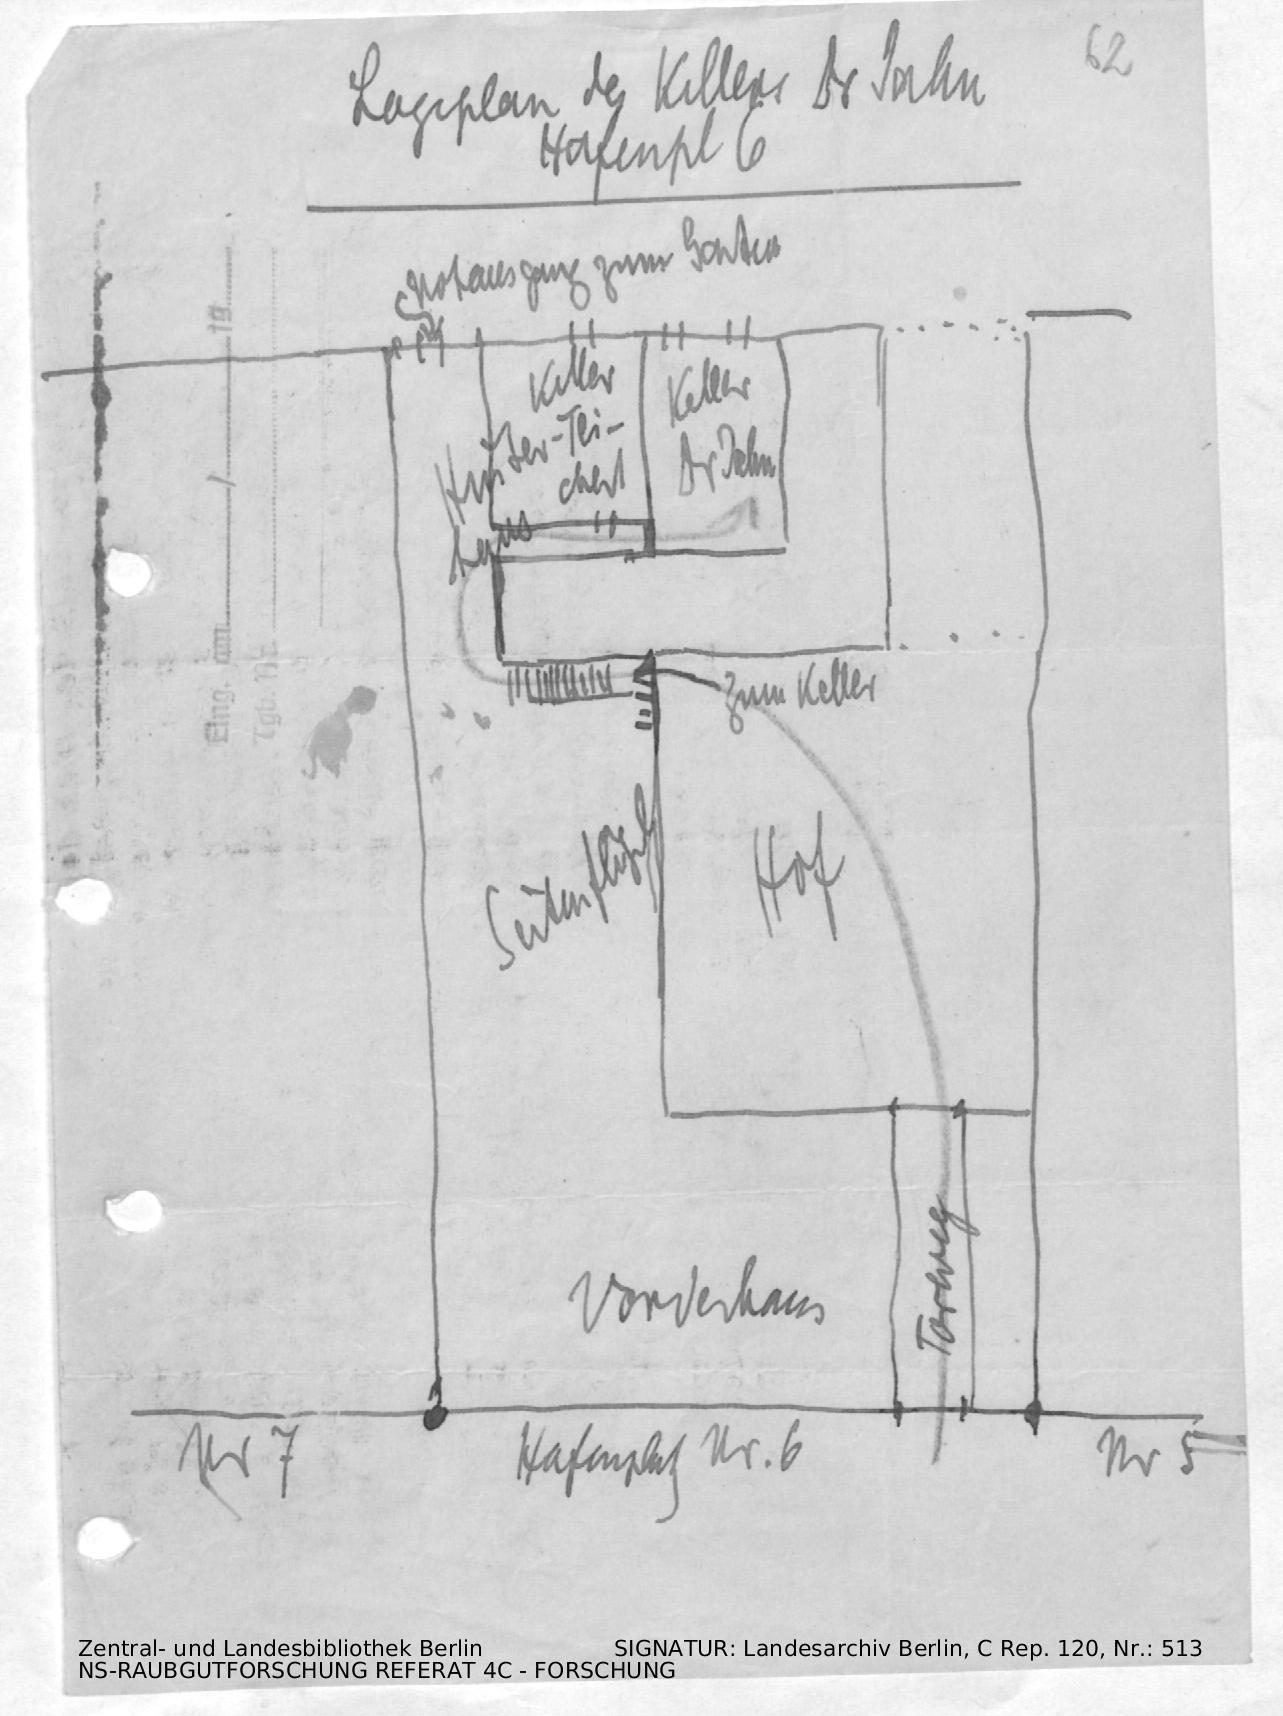 62
Lageplan des Kellers Dr Jahn
Hafenpl 6
Notausgang zum Garten
Keller
Huster-Tei-
chert
Keller
Dr Jahn
zum Keller
Seitenflügel
Hof
Vorderhaus
Torweg
Nr 7
Hafenplatz Nr. 6
Nr 5
Eing. am / 19
Tgb. Nr.
Zentral- und Landesbibliothek Berlin
SIGNATUR: Landesarchiv Berlin, C Rep. 120, Nr.: 513
NS-RAUBGUTFORSCHUNG REFERAT 4C - FORSCHUNG